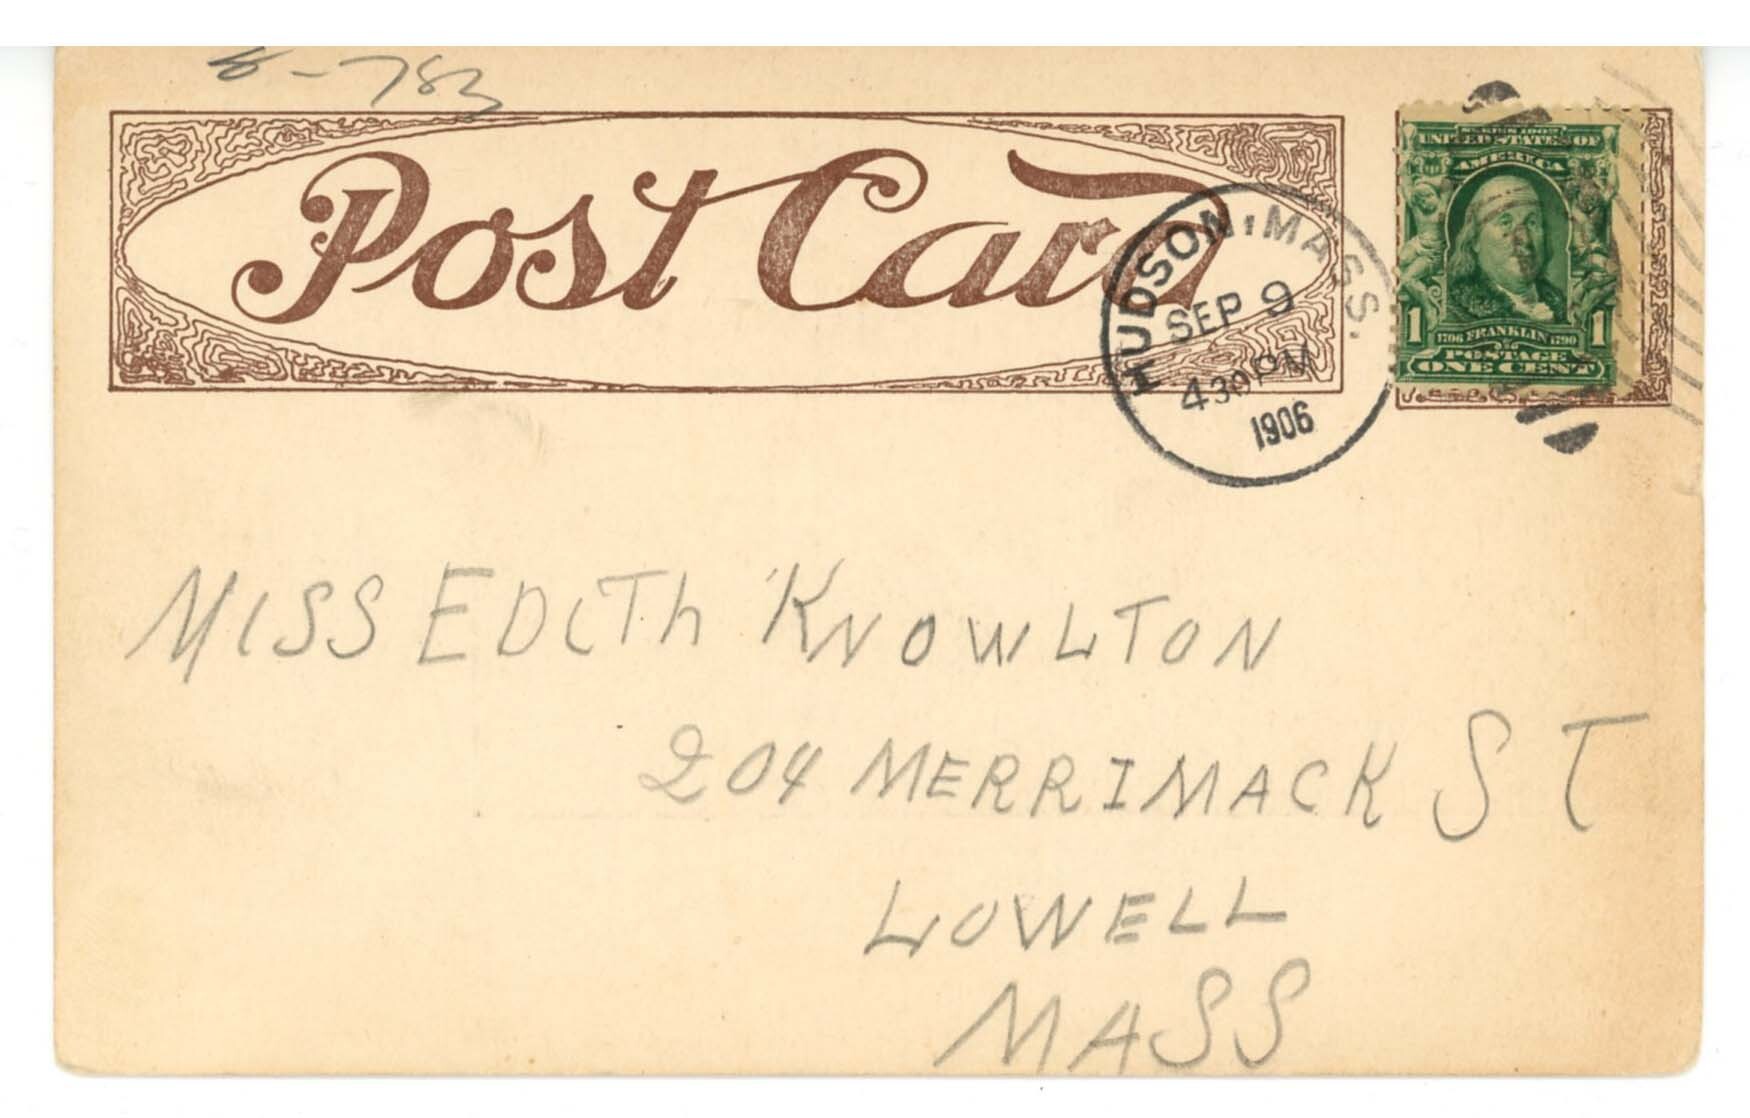 8-783
Post Card
HUDSON, MASS.
SEP 9
430 PM
1906
SERIES 1902
UNITED STATES OF
AMERICA
1 1
1706 FRANKLIN 1790
POSTAGE
ONE CENT
MISS EDITH KNOWLTON
204 MERRIMACK ST
LOWELL
MASS